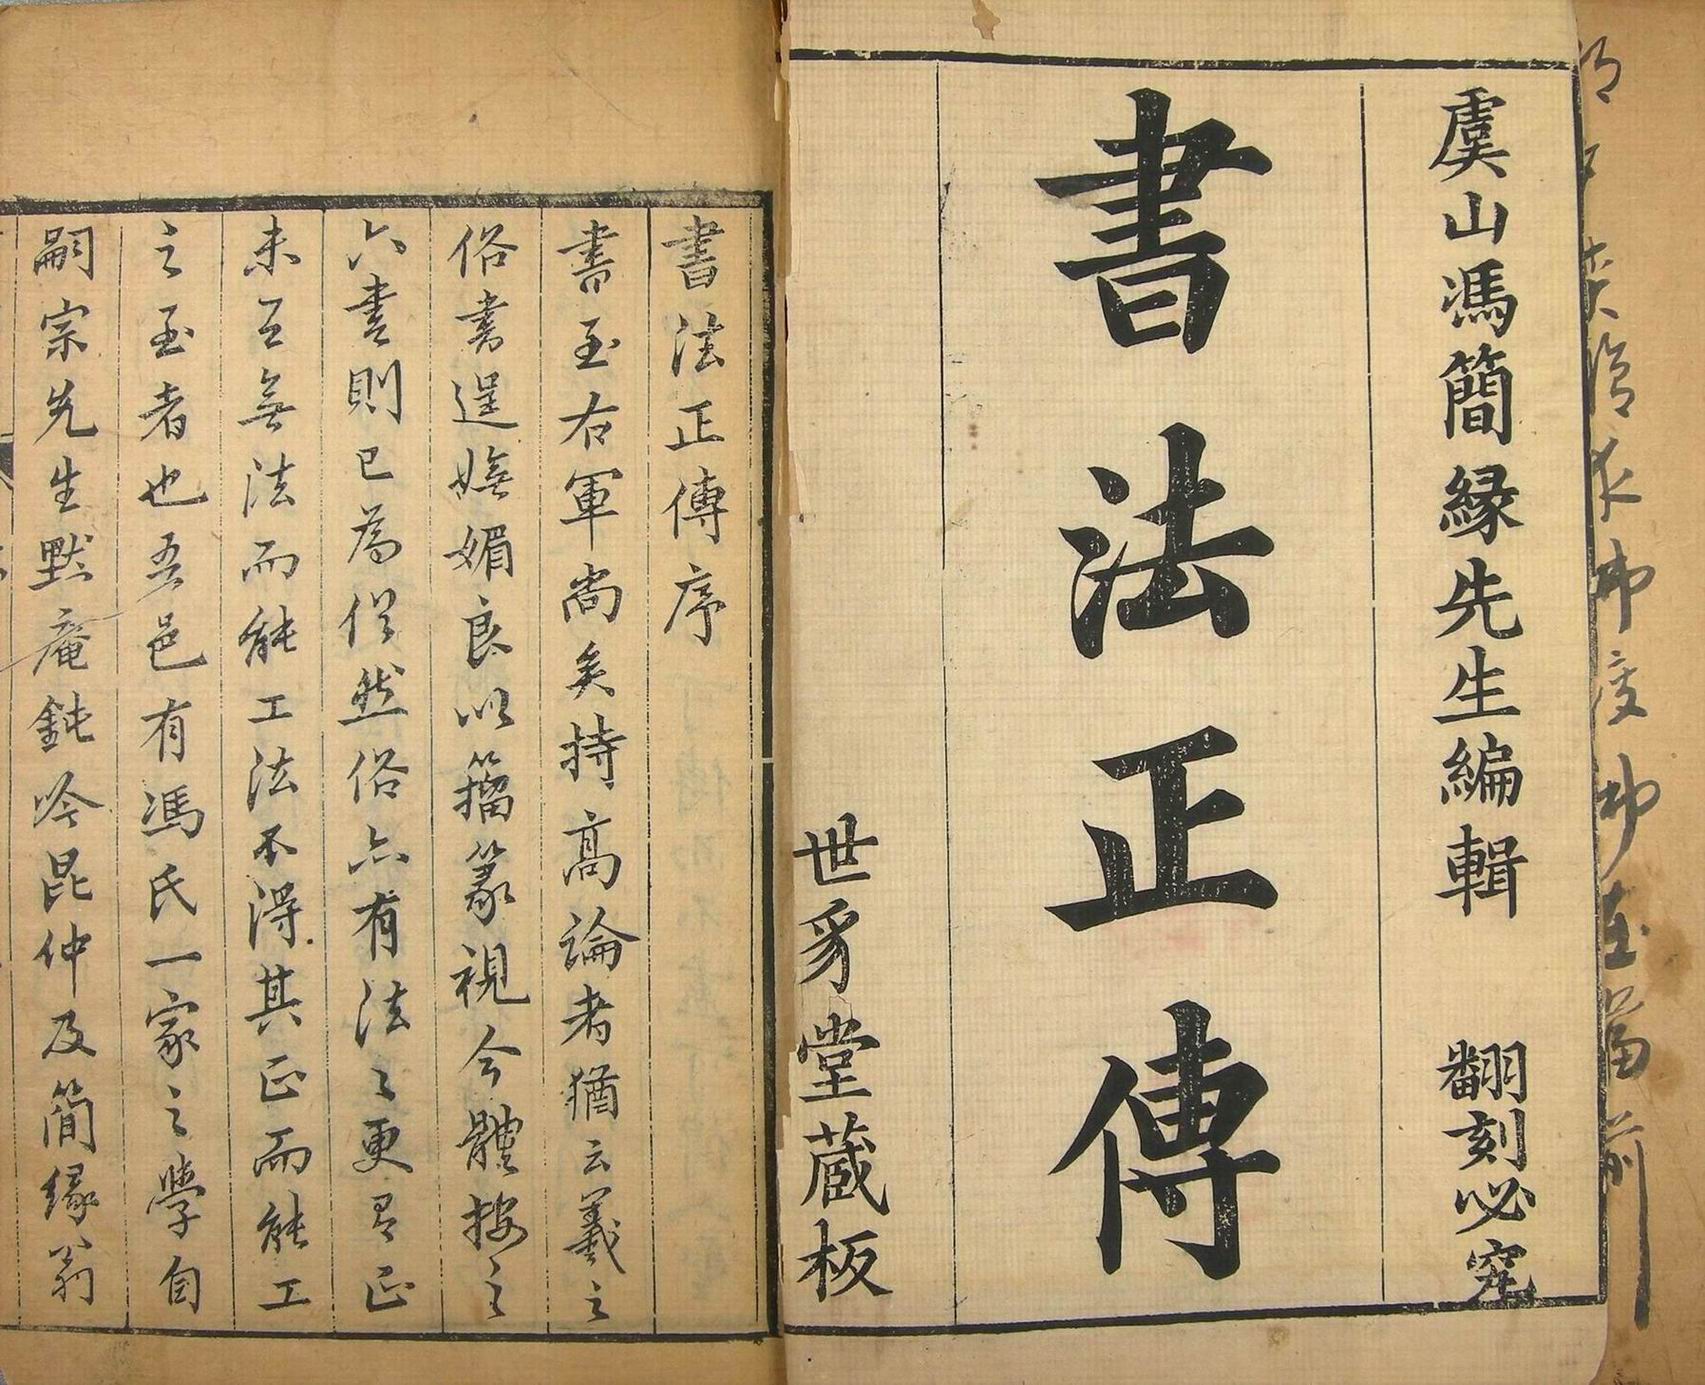 虞山馮簡緣先生編輯 翻刻必究
書法正傳
世豸堂蔵板
書法正傳序
書至右軍尚矣持高論者猶云羲之
俗書逞嫵媚良以籀篆視今體按之
六書則已為俗然俗亦有法〻更有正
未有無法而能工法不得其正而能工
之至者也吾邑有馮氏一家之學自
嗣宗先生默庵鈍吟昆仲及簡緣翁